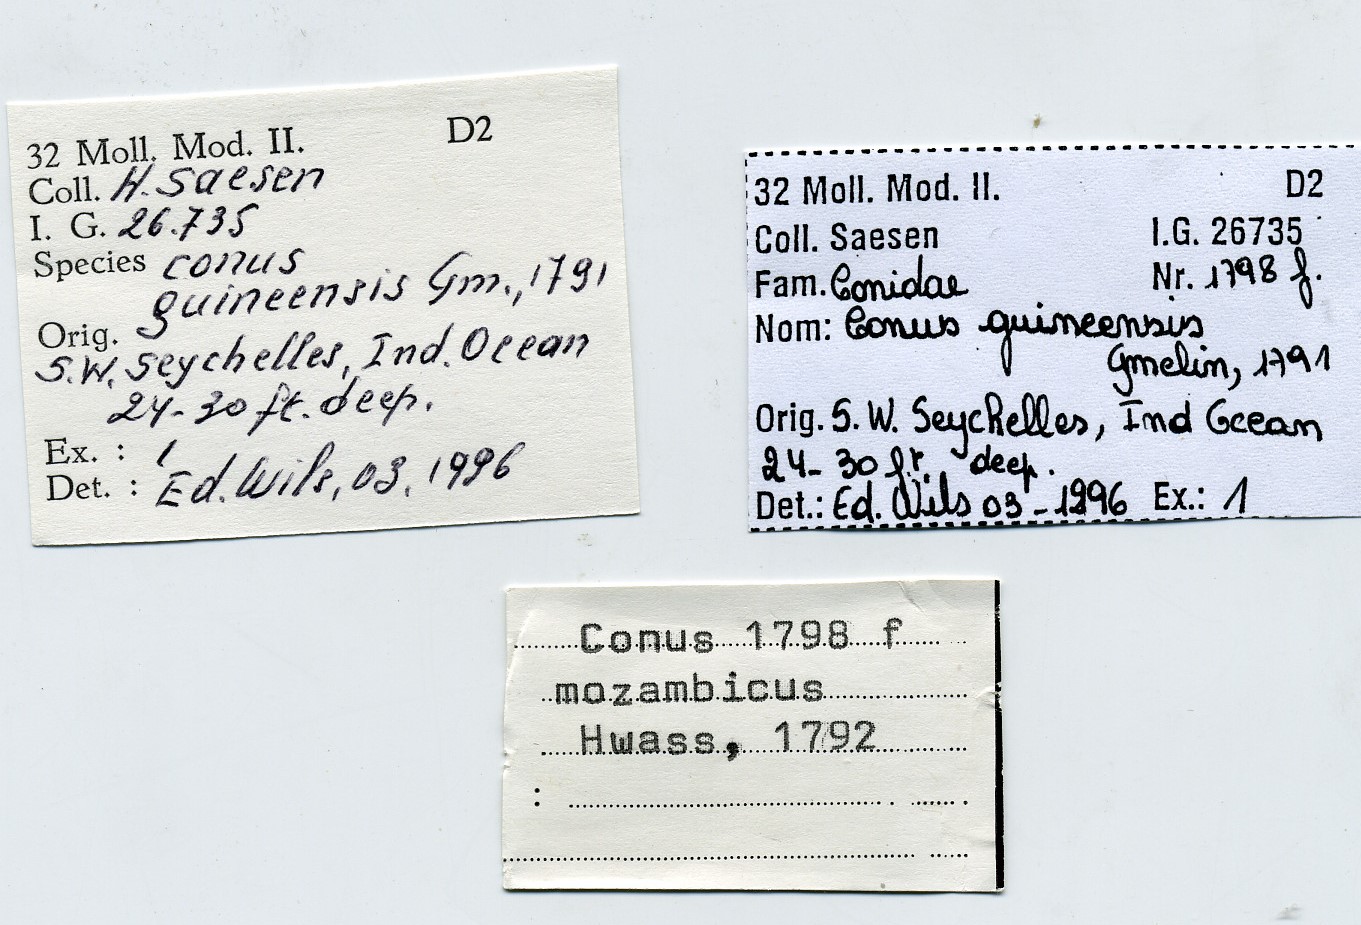 32 Moll. Mod. II. D2
Coll. H. Saesen
I. G. 26.735
Species conus
guineensis Gm., 1791
Orig.
S.W. Seychelles, Ind. Ocean
24-30 ft. deep.
Ex. : 1
Det. : Ed. Wils, 03, 1996
32 Moll. Mod. II. D2
Coll. Saesen I.G. 26735
Fam. Conidae Nr. 1798 f.
Nom: Conus guineensis
Gmelin, 1791
Orig. S. W. Seychelles, Ind Ocean
24-30 ft. deep.
Det.: Ed. Wils 03-1996 Ex.: 1
Conus 1798 f
mozambicus
Hwass, 1792
: